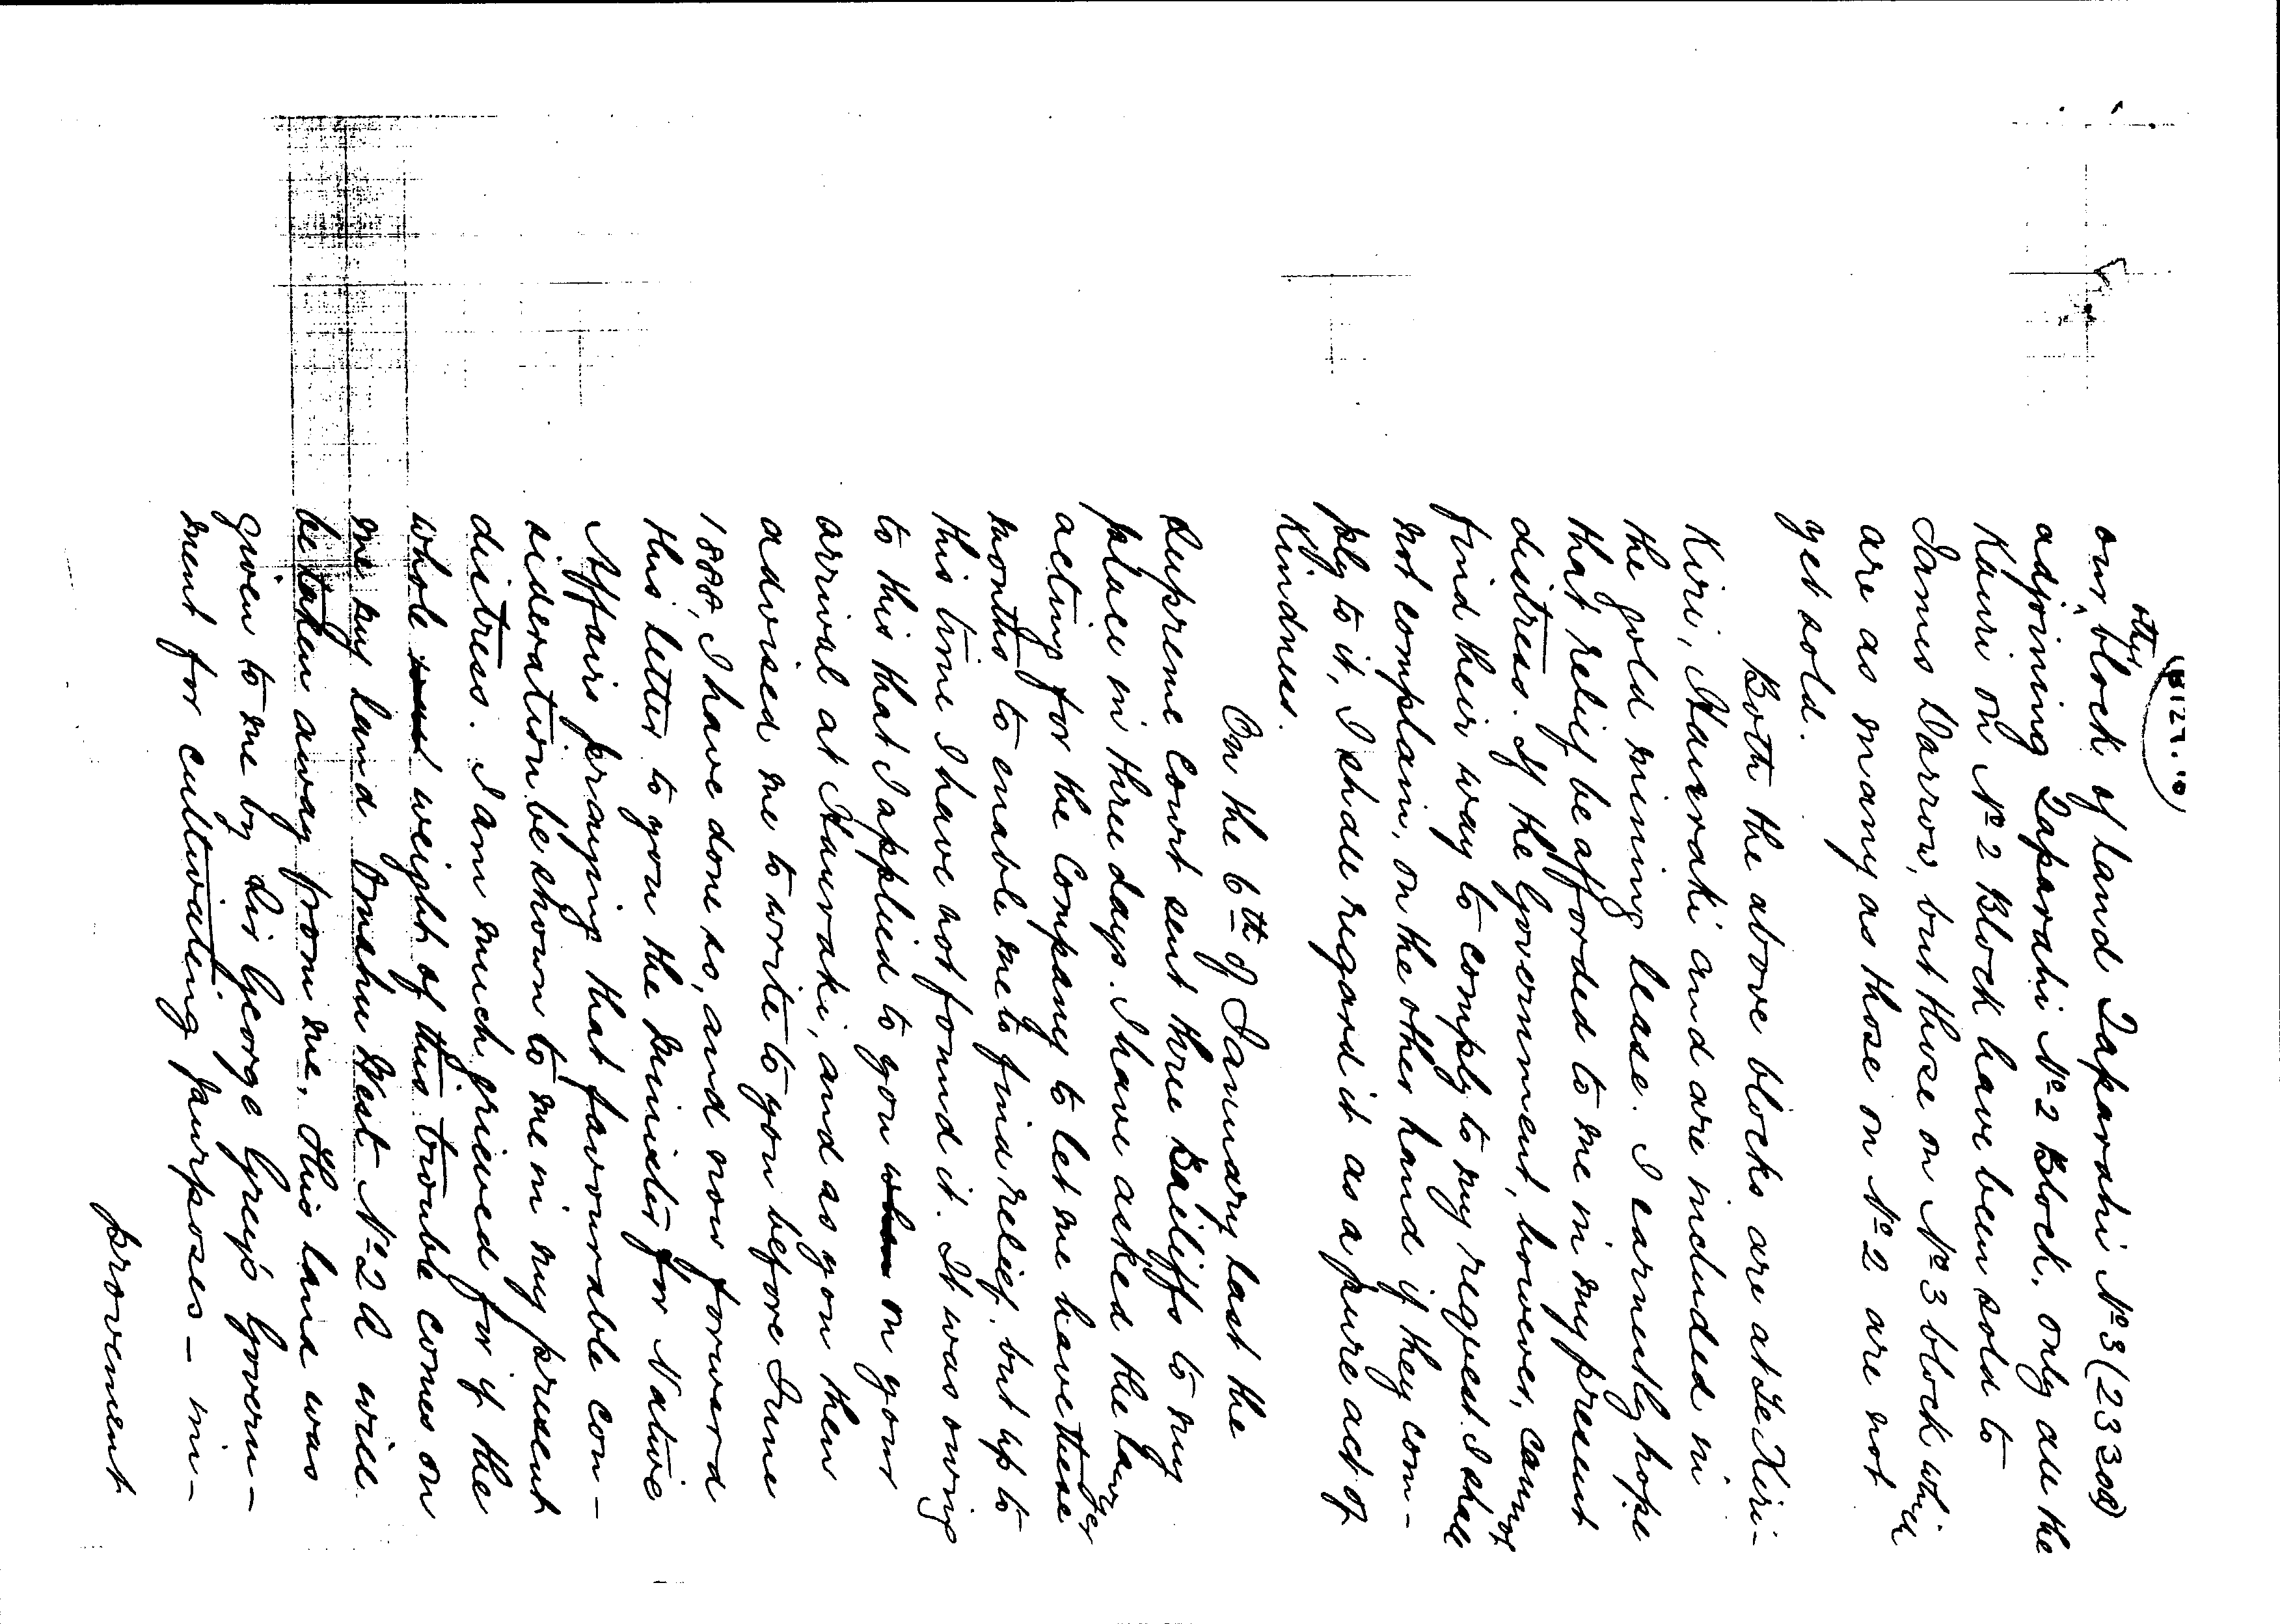 our other block of land Taparahi No 3 (233a)
adjoining Taparahi No 2 Block. Only all the
Kauri on No 2 Block have been sold to
James Darrow, but those on No 3 block which
are as many as those on No 2 are not
yet sold.
Both the above blocks are at Te Kiri-
Kiri, Hauraki and are included in
the gold mining lease. I earnestly hope
that relief be afforded to me in my present
distress. If the Government, however, cannot
find their way to comply to my request I shall
not complain, on the other hand if they com-
ply to it, I shall regard it as a pure act of
Kindness.
On the 6th of January last the
Supreme Court sent three Bailiffs to my
place in three days. I have asked the lawyer
acting for the Company to let me have these
months to enable me to find relief, but up to
this time I have not found it. It was owing
to this that I applied to you when on your
arrival at Hauraki, and as you then
advised me to write to you before June
1888, I have done so, and now forward
this letter to you the Minister for Native
Affairs praying that favourable con-
sideration be shown to me in my present
distress. I am much grieved for if the
whole weight of this trouble comes on
me my land Omahu West No 2A will
be taken away from me. This land was
given to me by Sir George Grey's Govern-
ment for cultivating purposes - im-
provement